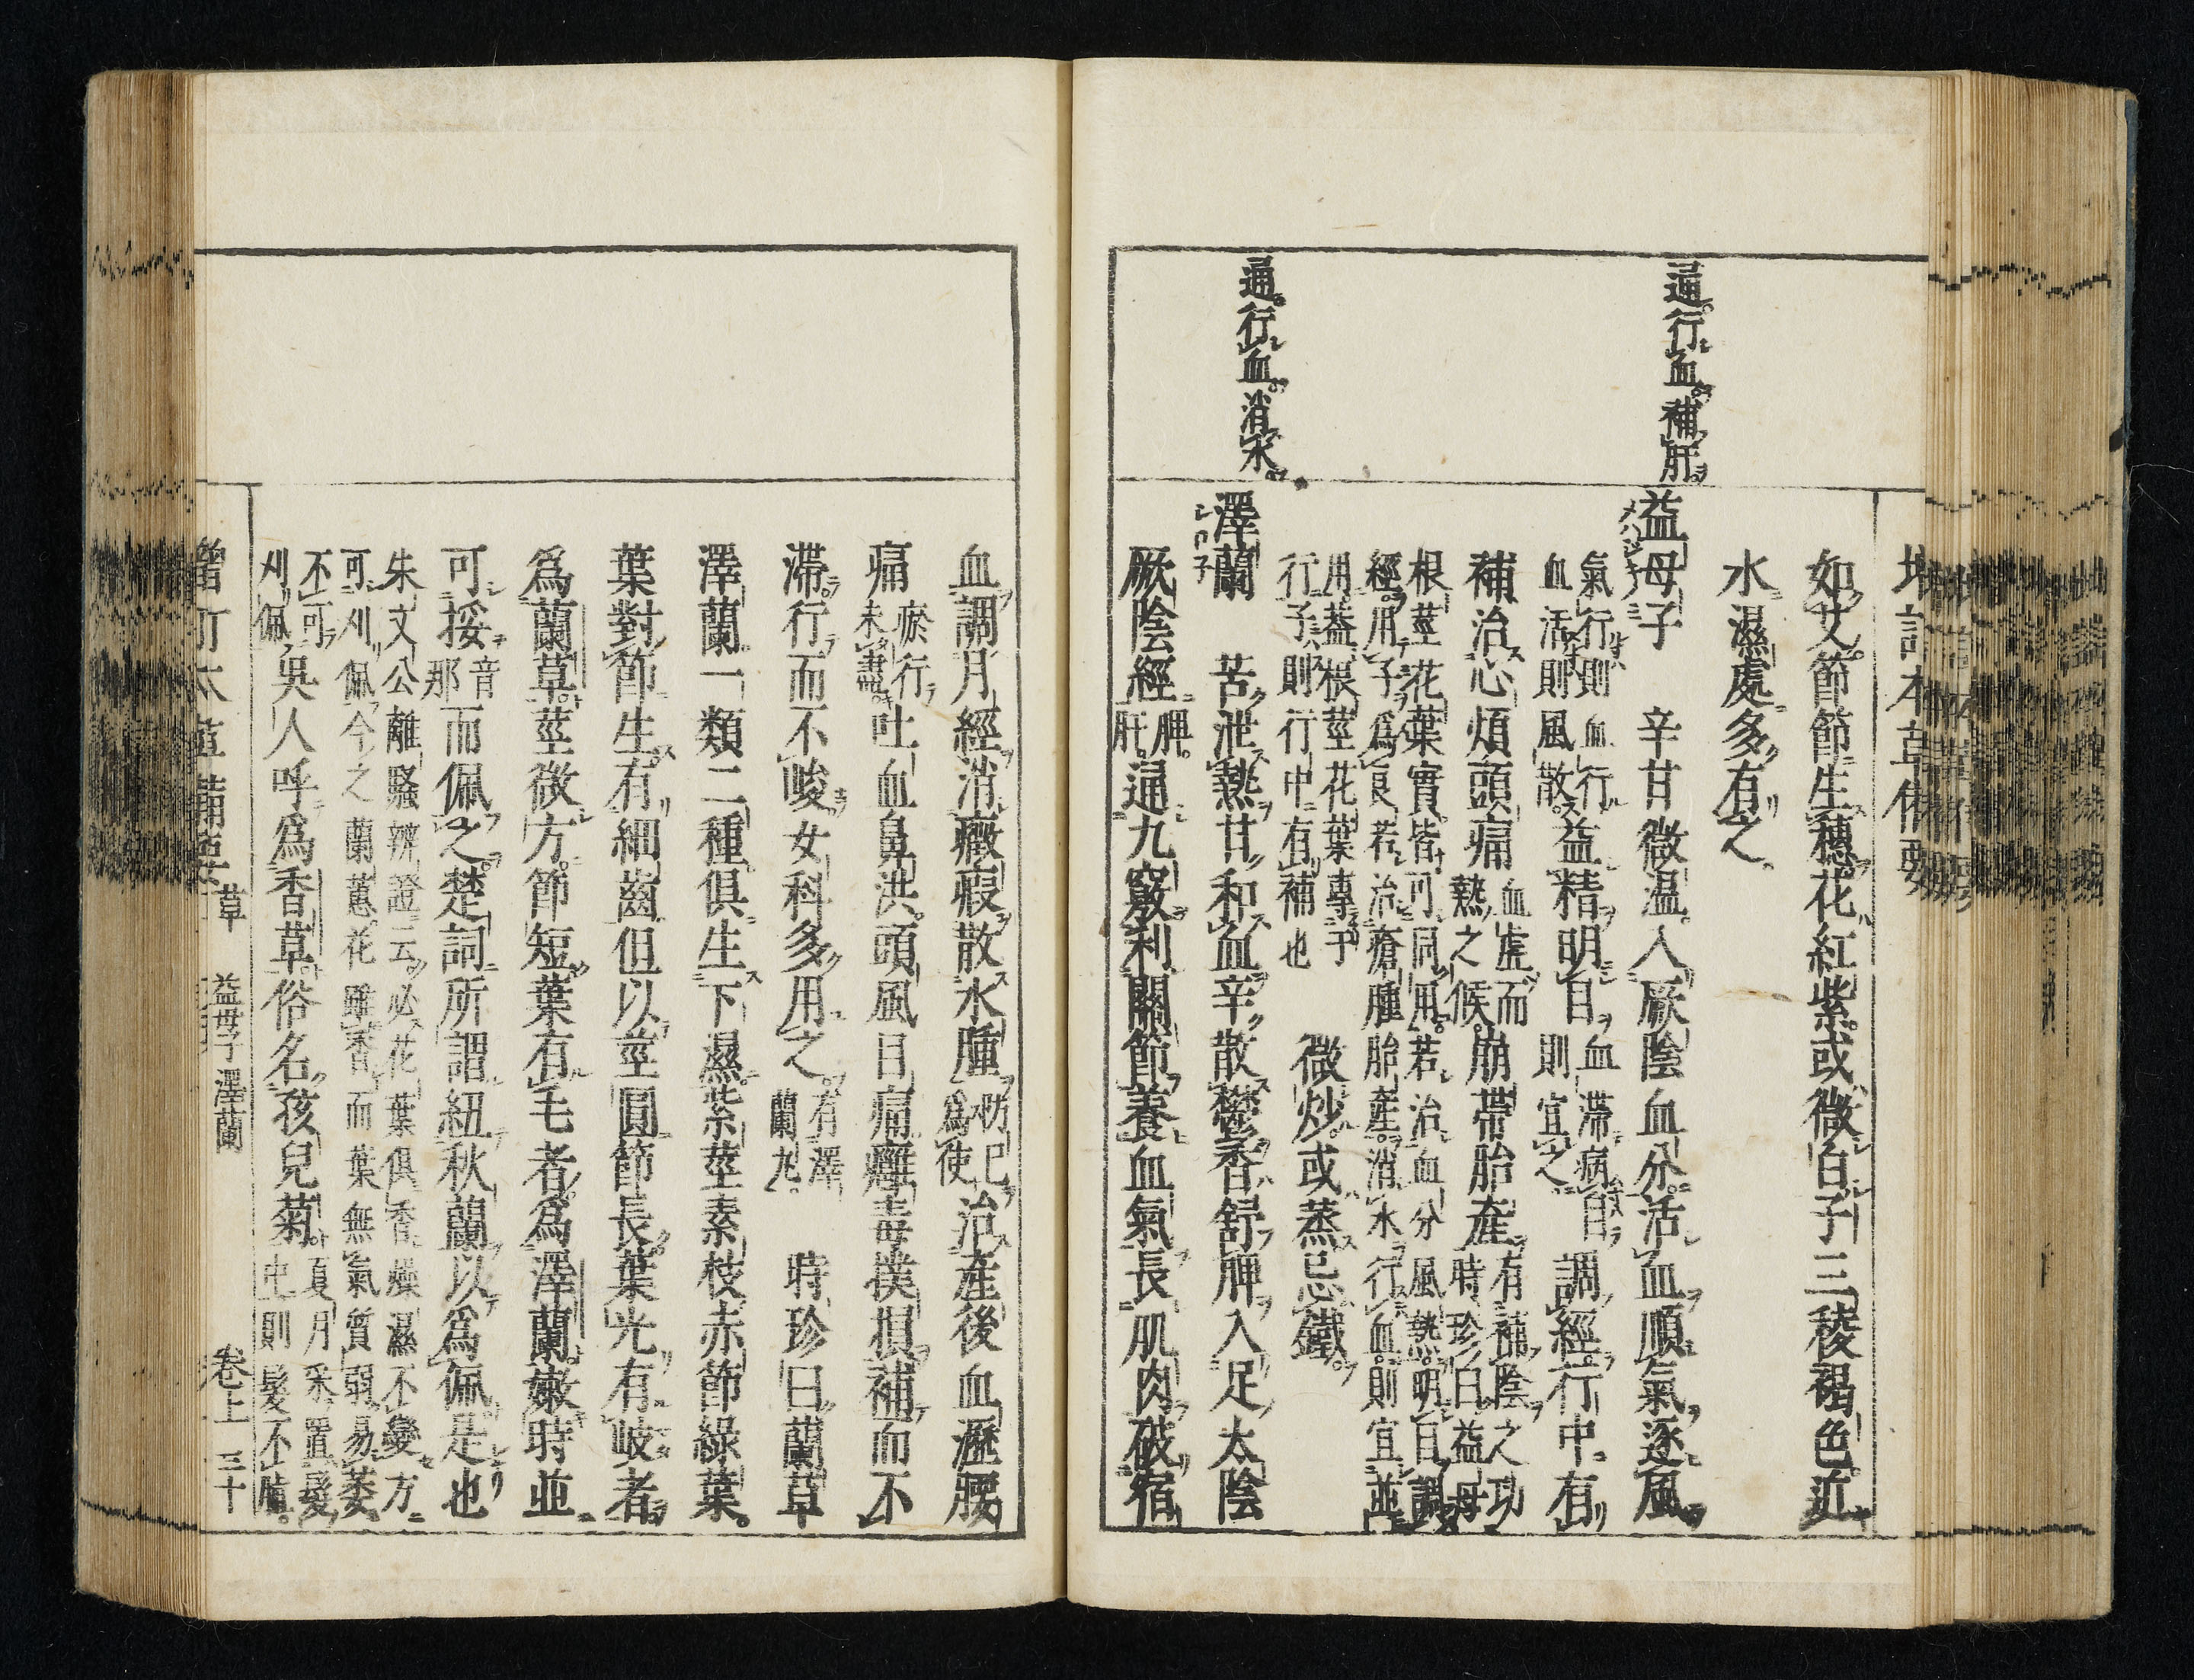 增訂本草備要
如艾節節生穗花紅紫或微白子三稜褐色近
水濕處多有之
通行血補肝
益母子 辛甘微溫入厥陰血分活血順氣逐風
氣行則血行
血活則風散
益精明目
血滯病目
則宜之
調經行中有
補治心煩頭痛
血虛而
熱之候
崩帶胎產
有補陰之功
時珍曰益母
根莖花葉實皆可同用若治血分風熱明目調
經用子為良若治瘡腫胎產消水行血則宜並
用蓋根莖花葉專于
行子則行中有補也
微炒或蒸忌鐵
通行血消水
澤蘭 苦泄熱甘和血辛散鬱香舒脾入足太陰
厥陰經
脾
肝
通九竅利關節養血氣長肌肉破宿
血調月經消癥瘕散水腫
防已
為使
治產後血瀝腰
痛
瘀行
未盡
吐血鼻洪頭風目痛癰毒撲損補而不
滯行而不峻女科多用之
有澤
蘭丸
時珍曰蘭草
澤蘭一類二種俱生下濕紫莖素枝赤節綠葉
葉對節生有細齒但以莖圓節長葉光有岐者
為蘭草莖微方節短葉有毛者為澤蘭嫩時並
可挼
音
那
而佩之楚詞所謂紐秋蘭以為佩是也
朱文公離騷辨證云必花葉俱香燥濕不變方
可刈佩今之蘭蕙花雖香而葉無氣質弱易萎
不可
刈佩
吳人呼為香草俗名孩兒菊
夏月采置髮
中則髮不䐈
增訂本草備要 草 益母子 澤蘭 卷上 三十